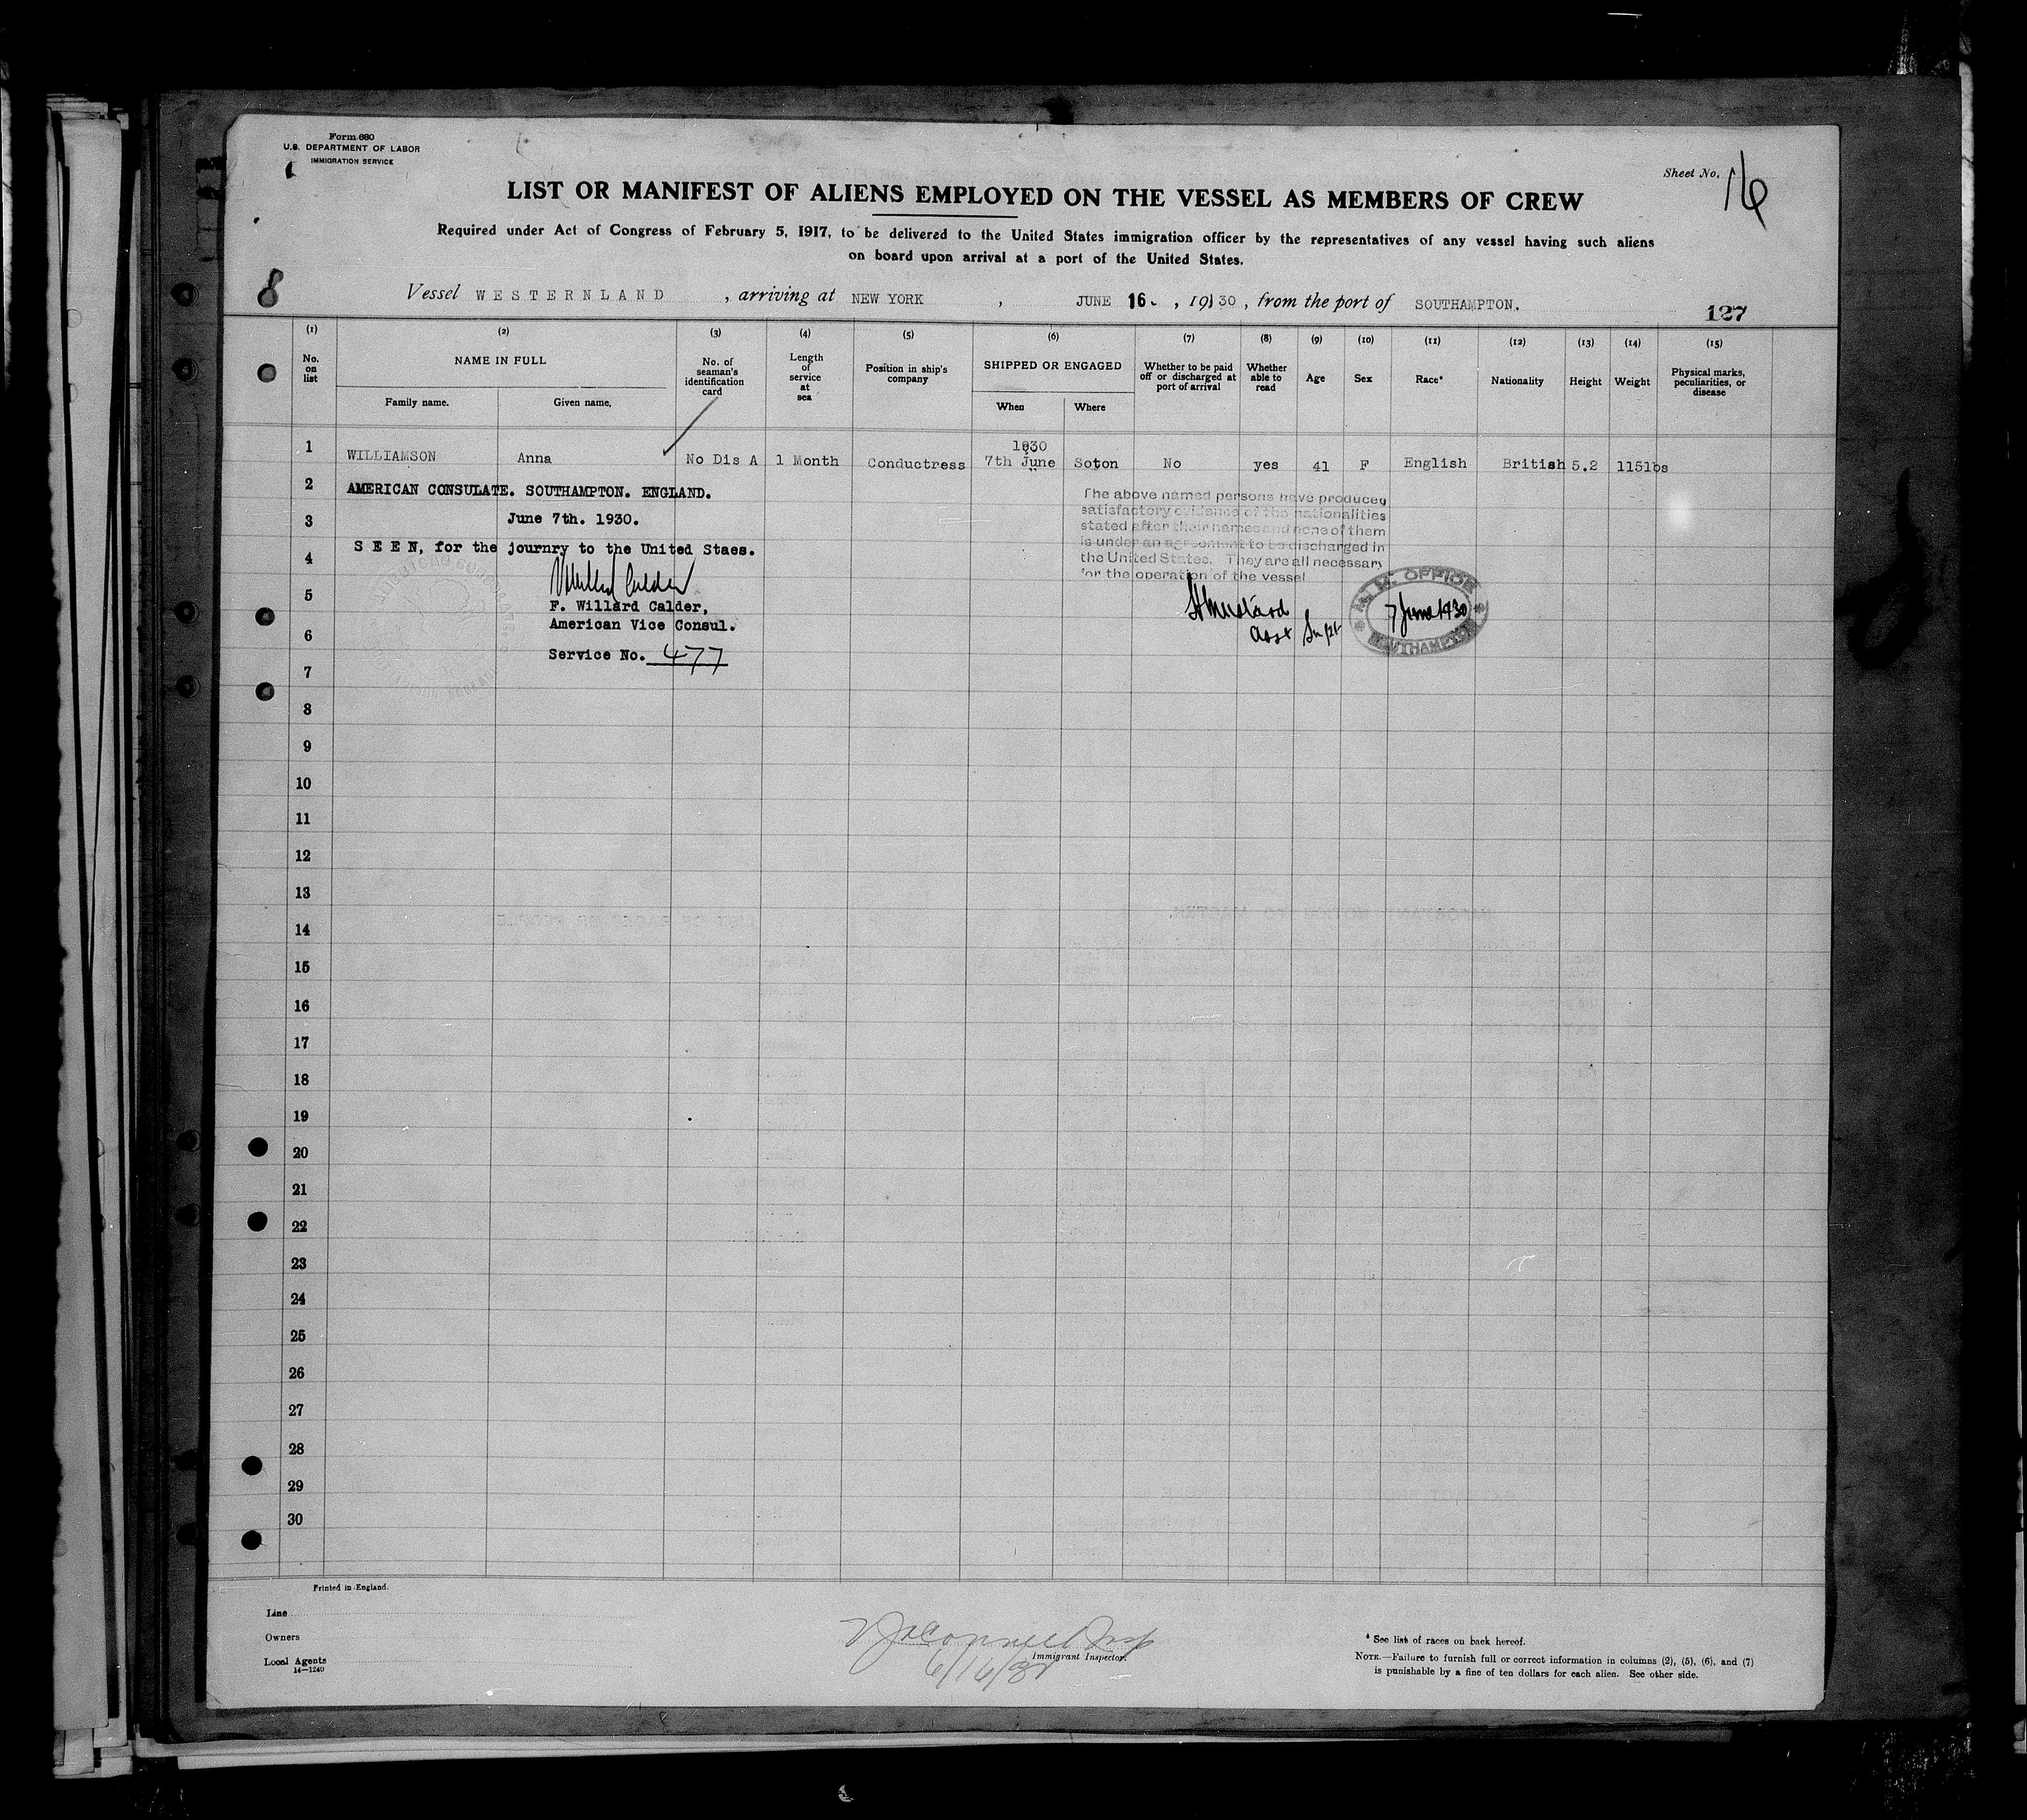 Form 680
U.S. DEPARTMENT OF LABOR
IMMIGRATION SERVICE
Sheet No. 16
LIST OR MANIFEST OF ALIENS EMPLOYED ON THE VESSEL AS MEMBERS OF CREW
Required under Act of Congress of February 5, 1917, to be delivered to the United States immigration officer by the representatives of any vessel having such aliens
on board upon arrival at a port of the United States.
8
Vessel WESTERNLAND, arriving at NEW YORK, JUNE 16, 1930, from the port of SOUTHAMPTON.
127
(1) (2) (3) (4) (5) (6) (7) (8) (9) (10) (11) (12) (13) (14) (15)
No. on list
NAME IN FULL
Family name. Given name.
No. of seaman's identification card
Length of service at sea
Position in ship's company
SHIPPED OR ENGAGED
When Where
Whether to be paid off or discharged at port of arrival
Whether able to read
Age
Sex
Race*
Nationality
Height
Weight
Physical marks, peculiarities, or disease
1930
1 WILLIAMSON Anna No Dis A 1 Month Conductress 7th June Soton No yes 41 F English British 5.2 115lbs
2 AMERICAN CONSULATE. SOUTHAMPTON. ENGLAND.
3 June 7th. 1930.
4 SEEN, for the journry to the United Staes.
The above named persons have produced
satisfactory evidence of the nationalities
stated after their names and none of them
is under an agreement to be discharged in
the United States. They are all necessary
for the operation of the vessel
5 F. Willard Calder,
American Vice Consul.
6 Service No. 477
Asst Supt
M. M. OFFICE
7 June 1930
SOUTHAMPTON
7
8
9
10
11
12
13
14
15
16
17
18
19
20
21
22
23
24
25
26
27
28
29
30
Printed in England.
Line
Owners
Local Agents
14—1240
Insp
Immigrant Inspector.
6/16/30
* See list of races on back hereof.
NOTE.—Failure to furnish full or correct information in columns (2), (5), (6), and (7)
is punishable by a fine of ten dollars for each alien. See other side.